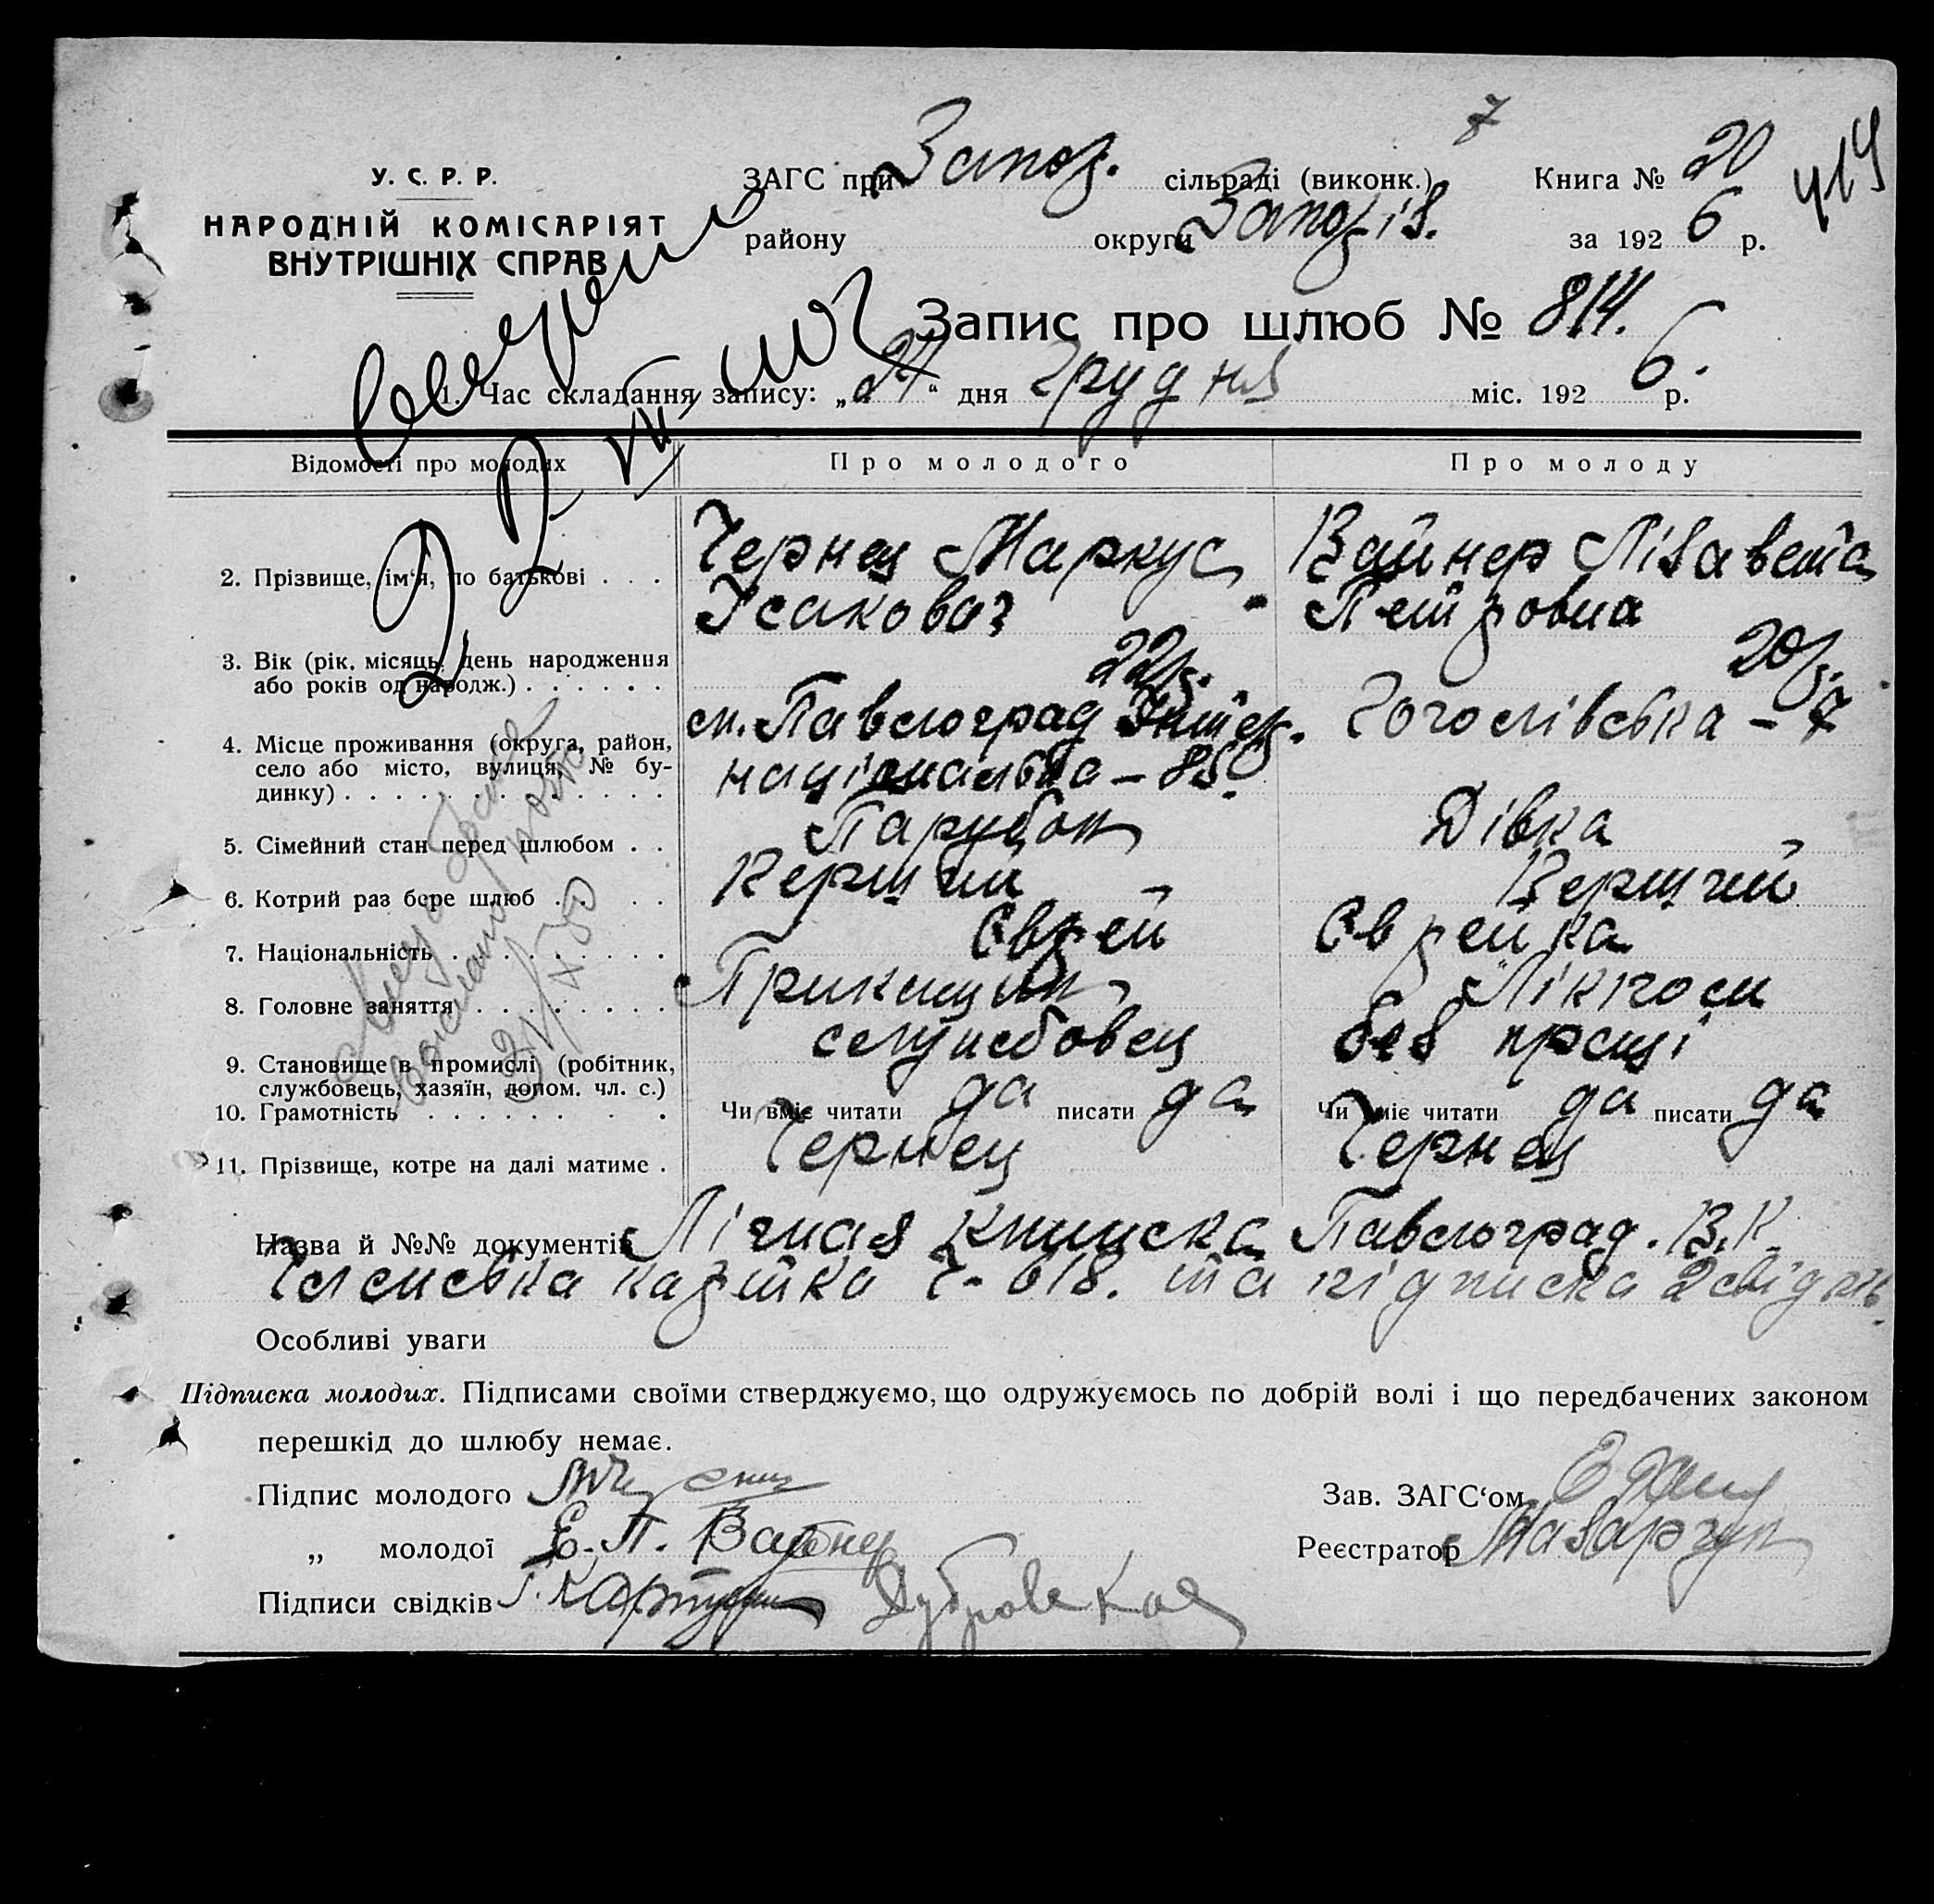 7
У. С. Р. Р.
НАРОДНІЙ КОМІСАРІЯТ
ВНУТРІШНІХ СПРАВ
ЗАГС при Запоз. сільраді (виконк.) Книга № 20
району округи Запозіз. за 1926 р.
414
Запис про шлюб № 814.
1. Час складання запису: „24“ дня Грудня міс. 1926. р.
Відомості про молодих Про молодого Про молоду
2. Прізвище, ім‘я, по батькові . . . Чернец Маркус Ісаковаз Вайнер Лізавета Петровна
3. Вік (рік, місяць, день народження
або років од народж.) . . . . . . 22р. 20р.
4. Місце проживання (округа, район,
село або місто, вулиця, № бу-
динку) . . . . . . . . . . . . м. Павлоград Інтер.національна – 85. Гоголівська – 7
5. Сімейний стан перед шлюбом . . Парубок Дівка
6. Котрий раз бере шлюб . . . . Перший Перший
7. Національність . . . . . . . . Єврей Єврейка
8. Головне заняття . . . . . . . . Прикащик
9. Становище в промислі (робітник,
службовець, хазяїн, допом. чл. с.) службовец без праці
10. Грамотність . . . . . . . . Чи вміє читати да писати да Чи вміє читати да писати да
11. Прізвище, котре на далі матиме . Чернец Чернец
Назва й №№ документів Лічная книжка Павлоград. В.К.
Членська картка Ч- 618. та підписка 2 свідків
Особливі уваги
Підписка молодих. Підписами своїми стверджуємо, що одружуємось по добрій волі і що передбачених законом
перешкід до шлюбу немає.
Підпис молодого Зав. ЗАГС‘ом
„ молодої Е. П. Вайнер Реєстратор Назарчук
Підписи свідків Дубровская